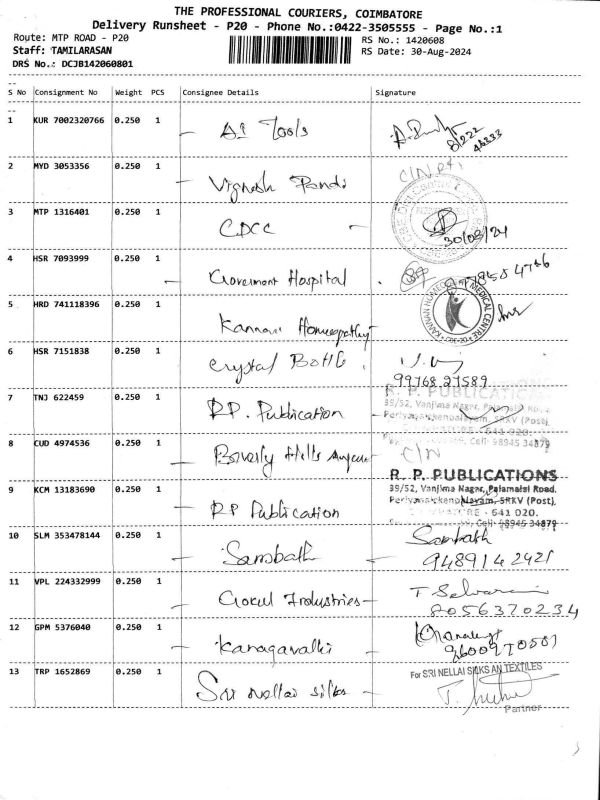 THE PROFESSIONAL COURIERS, COIMBATORE
Delivery Runsheet - P20 - Phone No.:0422-3505555 - Page No.:1
Route: MTP ROAD - P20
RS No.: 1420608
Staff: TAMILARASAN
RS Date: 30-Aug-2024
DRS No.: DCJB142060801
S No Consignment No Weight PCS Consignee Details Signature
1 KUR 7002320766 0.250 1 - Ai Tools
2 MYD 3053356 0.250 1 - Vignesh Pandi
3 MTP 1316401 0.250 1 CDCC - 30/08/24
4 HSR 7093999 0.250 1 - Goverment Hospital
5 HRD 741118396 0.250 1 Kannan Homeopathy
KANNAN MEDICAL CENTRE
6 HSR 7151838 0.250 1 Crystal Bottle
99768 27589
7 TNJ 622459 0.250 1 - RP. Publication
R. P. PUBLICATIONS
39/52, Vanjima Nagar, Palamalai Road,
SRKV (Post),
641 020.
Cell: 98945 34879
8 CUD 4974536 0.250 1 - Beverly Hills
C/N
9 KCM 13183690 0.250 1 - RP Publication
R. P. PUBLICATIONS
39/52, Vanjima Nagar, Palamalai Road,
SRKV (Post),
641 020.
Cell: 98945 34879
10 SLM 353478144 0.250 1 - Sambath - Sambath
9489142421
11 VPL 224332999 0.250 1 - Gokul Industries - T Selvarani
8056370234
12 GPM 5376040 0.250 1 - Kanagavalli
13 TRP 1652869 0.250 1 - Sri Nellai Silks -
For SRI NELLAI SILKS AN TEXTILES
Partner